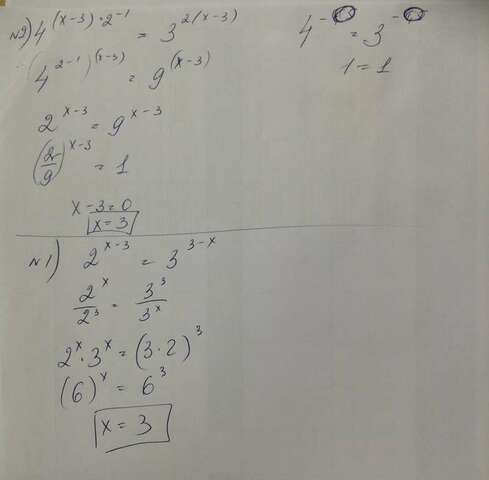 N2) 4^{(x-3)·2^{-1}} = 3^{2(x-3)}
(4^{2^{-1}})^{(x-3)} = 9^{(x-3)}
2^{x-3} = 9^{x-3}
(2/9)^{x-3} = 1
x-3=0
x=3
4^{-0} = 3^{-0}
1=1
N1) 2^{x-3} = 3^{3-x}
2^x/2^3 = 3^3/3^x
2^x · 3^x = (3·2)^3
(6)^x = 6^3
x = 3